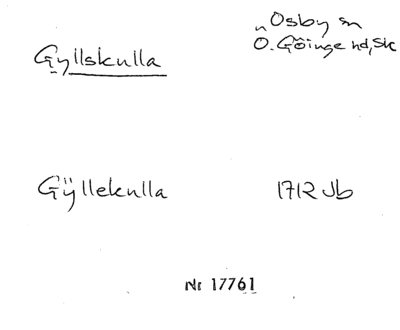 Osby sn
Gyllskulla
Ö. Göinge hd, Sk
Gÿllekulla 1712 Jb
Nr 17761